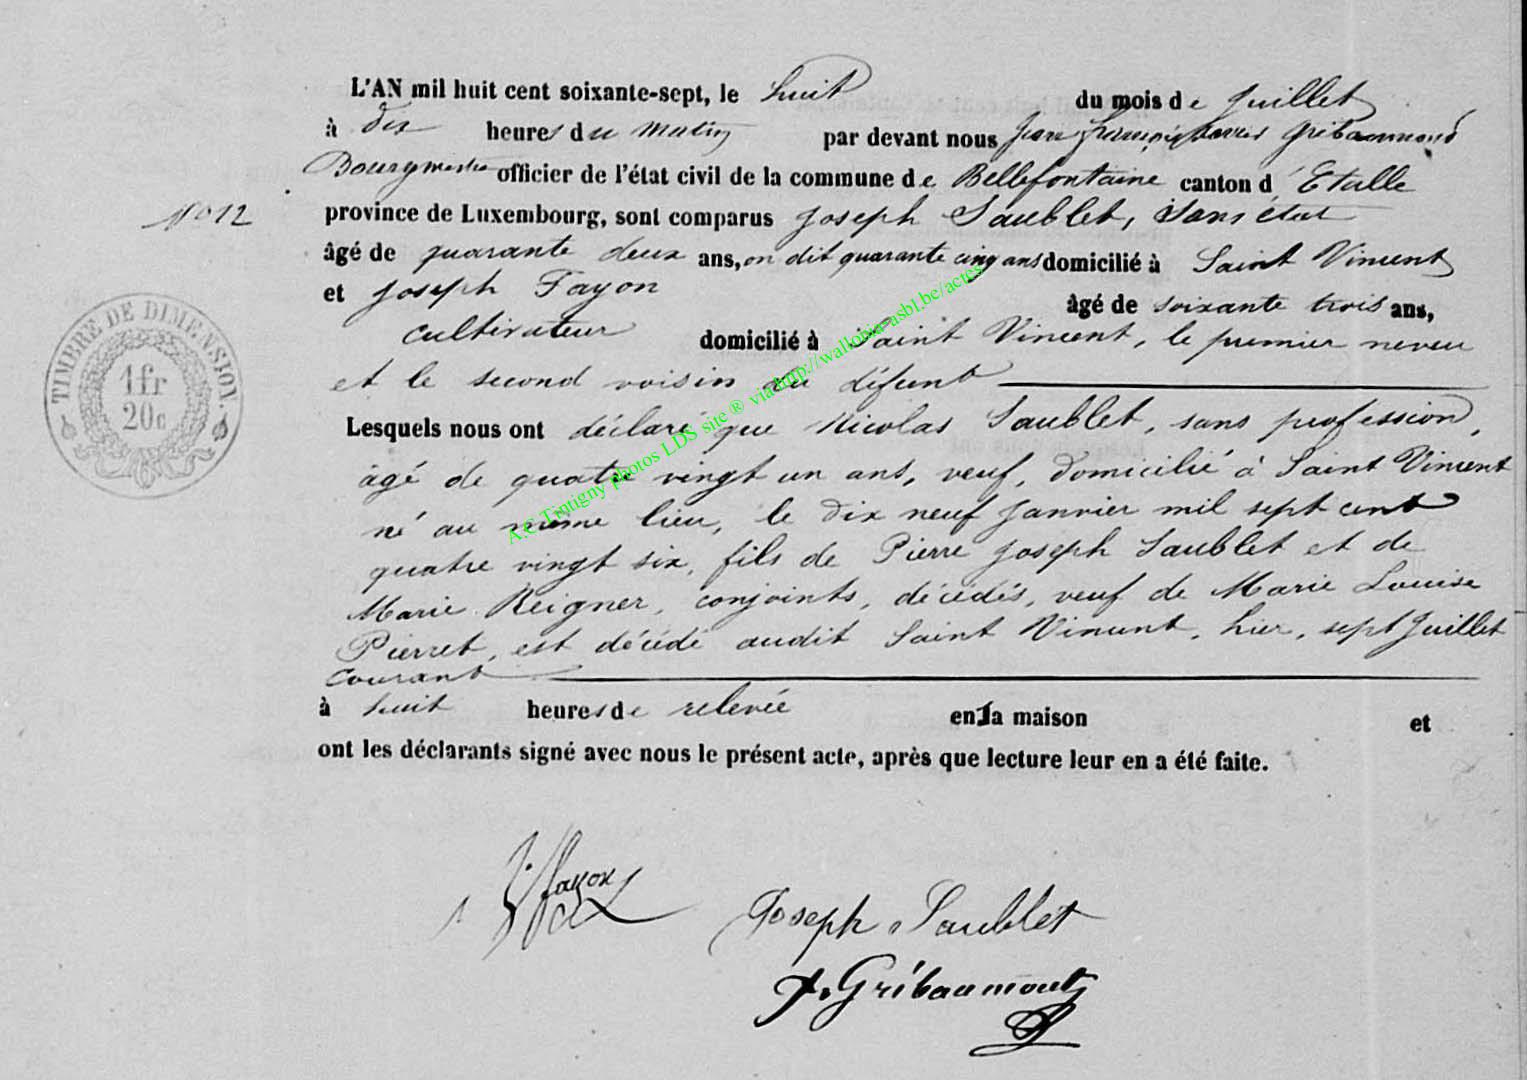 L'AN mil huit cent soixante-sept, le huit du mois de Juillet
à dix heures du matin par devant nous Jean François Xavier Gribaumont
Bourgmestre officier de l'état civil de la commune de Bellefontaine canton d'Etalle
No 12
province de Luxembourg, sont comparus Joseph Saublet, sans état
âgé de quarante deux ans, on dit quarante cinq ans domicilié à Saint Vincent
et Joseph Fayon âgé de soixante trois ans,
cultivateur domicilié à Saint Vincent, le premier neveu
et le second voisin du défunt
Lesquels nous ont déclaré que Nicolas Saublet, sans profession,
âgé de quatre vingt un ans, veuf, domicilié à Saint Vincent
né au même lieu, le dix neuf Janvier mil sept cent
quatre vingt six, fils de Pierre Joseph Saublet et de
Marie Reigner, conjoints, décédés, veuf de Marie Louise
Pierret, est décédé audit Saint Vincent, hier, sept Juillet
courant
à huit heures de relevée en la maison et
ont les déclarants signé avec nous le présent acte, après que lecture leur en a été faite.
TIMBRE DE DIMENSION.
1 fr
20c
A.C Tintigny photos LDS site ® via http://wallonia-asbl.be/actes
J. fayon
Joseph Saublet
X. Gribaumont